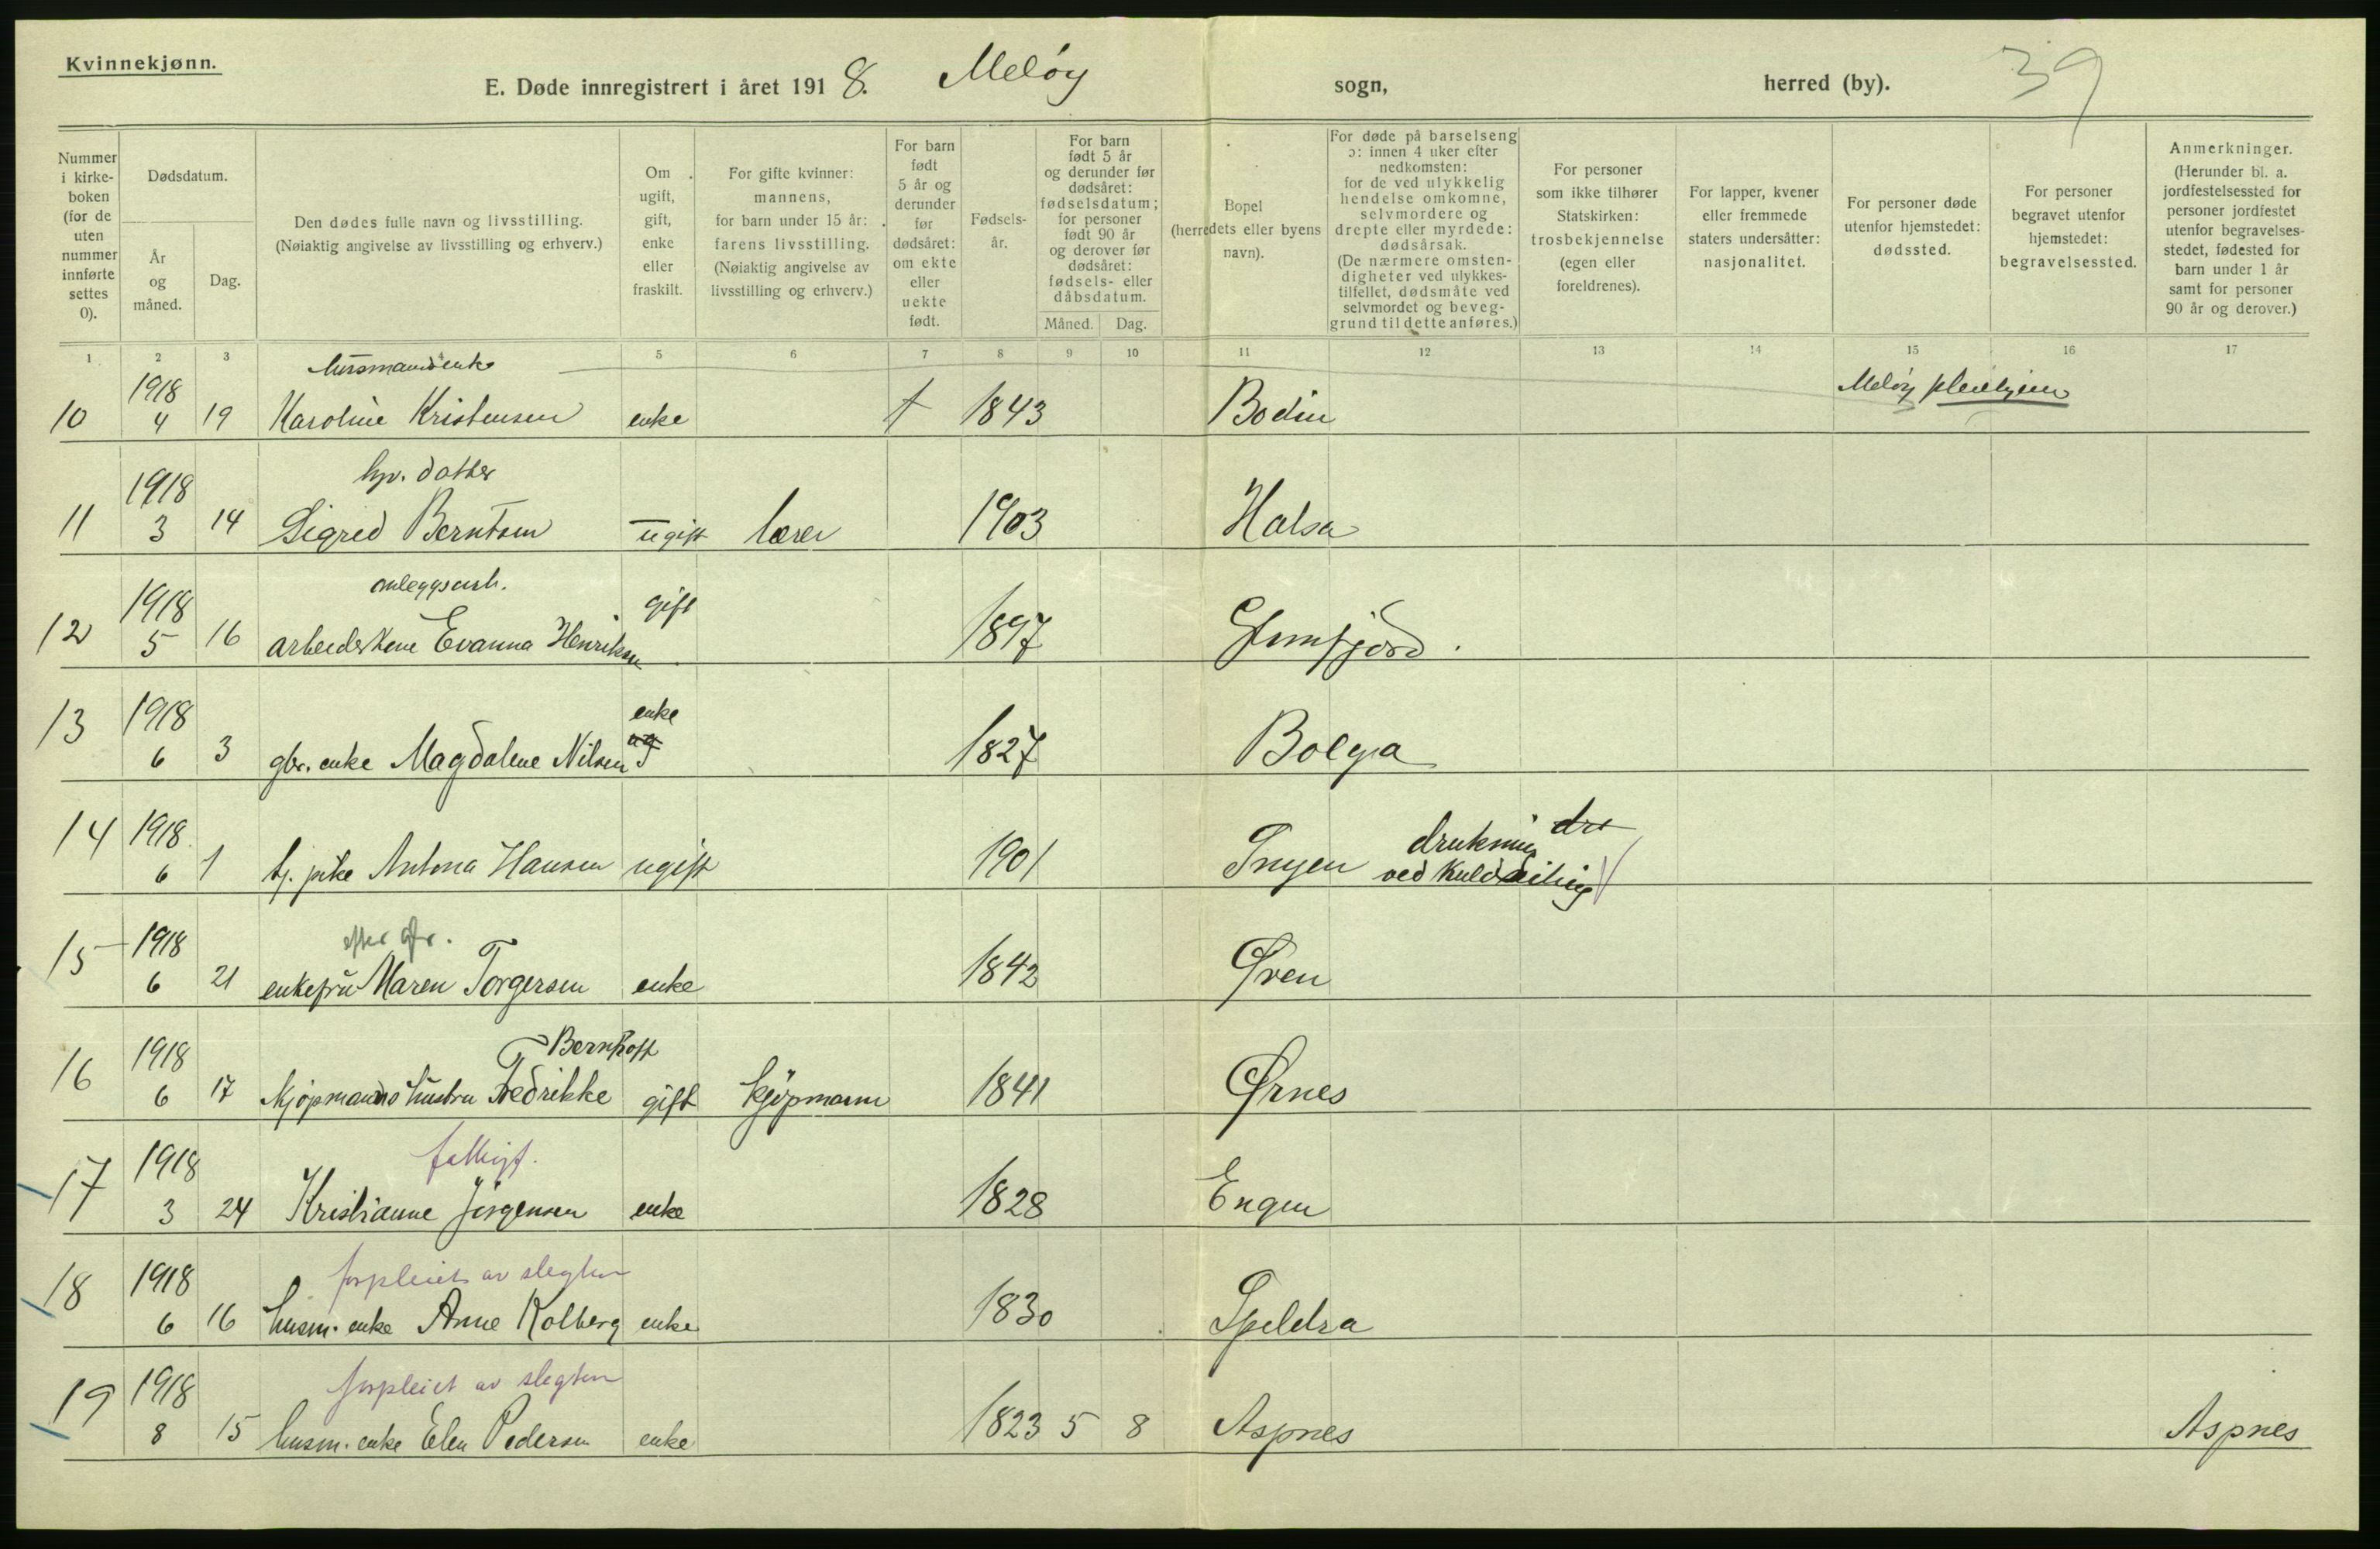 Kvinnekjønn.
E. Døde innregistrert i året 1918. Meløy sogn, herred (by). 39
Nummer i kirke-boken (for de uten nummer innførte settes 0).
Dødsdatum.
År og måned.
Dag.
Den dødes fulle navn og livsstilling.
(Nøiaktig angivelse av livsstilling og erhverv.)
Om ugift, gift, enke eller fraskilt.
For gifte kvinner: mannens, for barn under 15 år: farens livsstilling. (Nøiaktig angivelse av livsstilling og erhverv.)
For barn født 5 år og derunder før dødsåret: om ekte eller uekte født.
Fødsels-år.
For barn født 5 år og derunder før dødsåret: fødselsdatum; for personer født 90 år og derover før dødsåret: fødsels- eller dåbsdatum.
Måned. Dag.
Bopel (herredets eller byens navn).
For døde på barselseng ɔ: innen 4 uker efter nedkomsten: for de ved ulykkelig hendelse omkomne, selvmordere og drepte eller myrdede: dødsårsak. (De nærmere omsten-digheter ved ulykkes-tilfellet, dødsmåte ved selvmordet og beveg-grund til dette anføres.)
For personer som ikke tilhører Statskirken: trosbekjennelse (egen eller foreldrenes).
For lapper, kvener eller fremmede staters undersåtter: nasjonalitet.
For personer døde utenfor hjemstedet: dødssted.
For personer begravet utenfor hjemstedet: begravelsessted.
Anmerkninger. (Herunder bl. a. jordfestelsessted for personer jordfestet utenfor begravelses-stedet, fødested for barn under 1 år samt for personer 90 år og derover.)
1 2 3 4 5 6 7 8 9 10 11 12 13 14 15 16 17
husmandsenke
10 1918 4 19 Karoline Kristensen enke 1843 Bodin Meløy pleiehjem
hjv. datter
11 1918 3 14 Sigred Berntsen ugift lærer 1903 Halsa
anleggsarb.
12 1918 5 16 arbeiderkone Evanna Henriksen gift 1897 Glomfjord.
13 1918 6 3 gbr. enke Magdalene Nilsen ug enke 1827 Bolga
14 1918 6 1 tj. pike Antona Hansen ugift 1901 drukning dre
ved Kuldseiling
efter gbr.
15 1918 6 21 enkefru Maren Torgersen enke 1842 Øren
Bernhoft
16 1918 6 17 Kjøpmanns hustru Fredrikke gift kjøpmann 1841 Ørnes
fattigf.
17 1918 3 24 Kristianne Jörgensen enke 1828 Engen
forpleiet av slegten
18 1918 6 16 husm. enke Anne Kolberg enke 1830 Speldra
forpleiet av slegten
19 1918 8 15 husm. enke Elen Pedersen enke 1823 5 8 Aspnes Aspnes